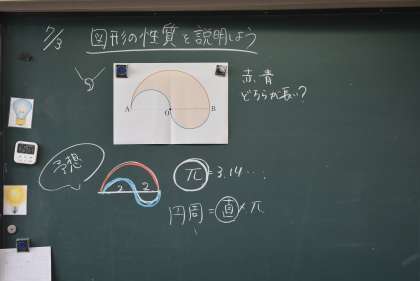 7/3
図形の性質を説明しよう
A
O
B
赤、青
どちらが長い?
予想
2 2
π = 3.14…
円周 = 直 × π